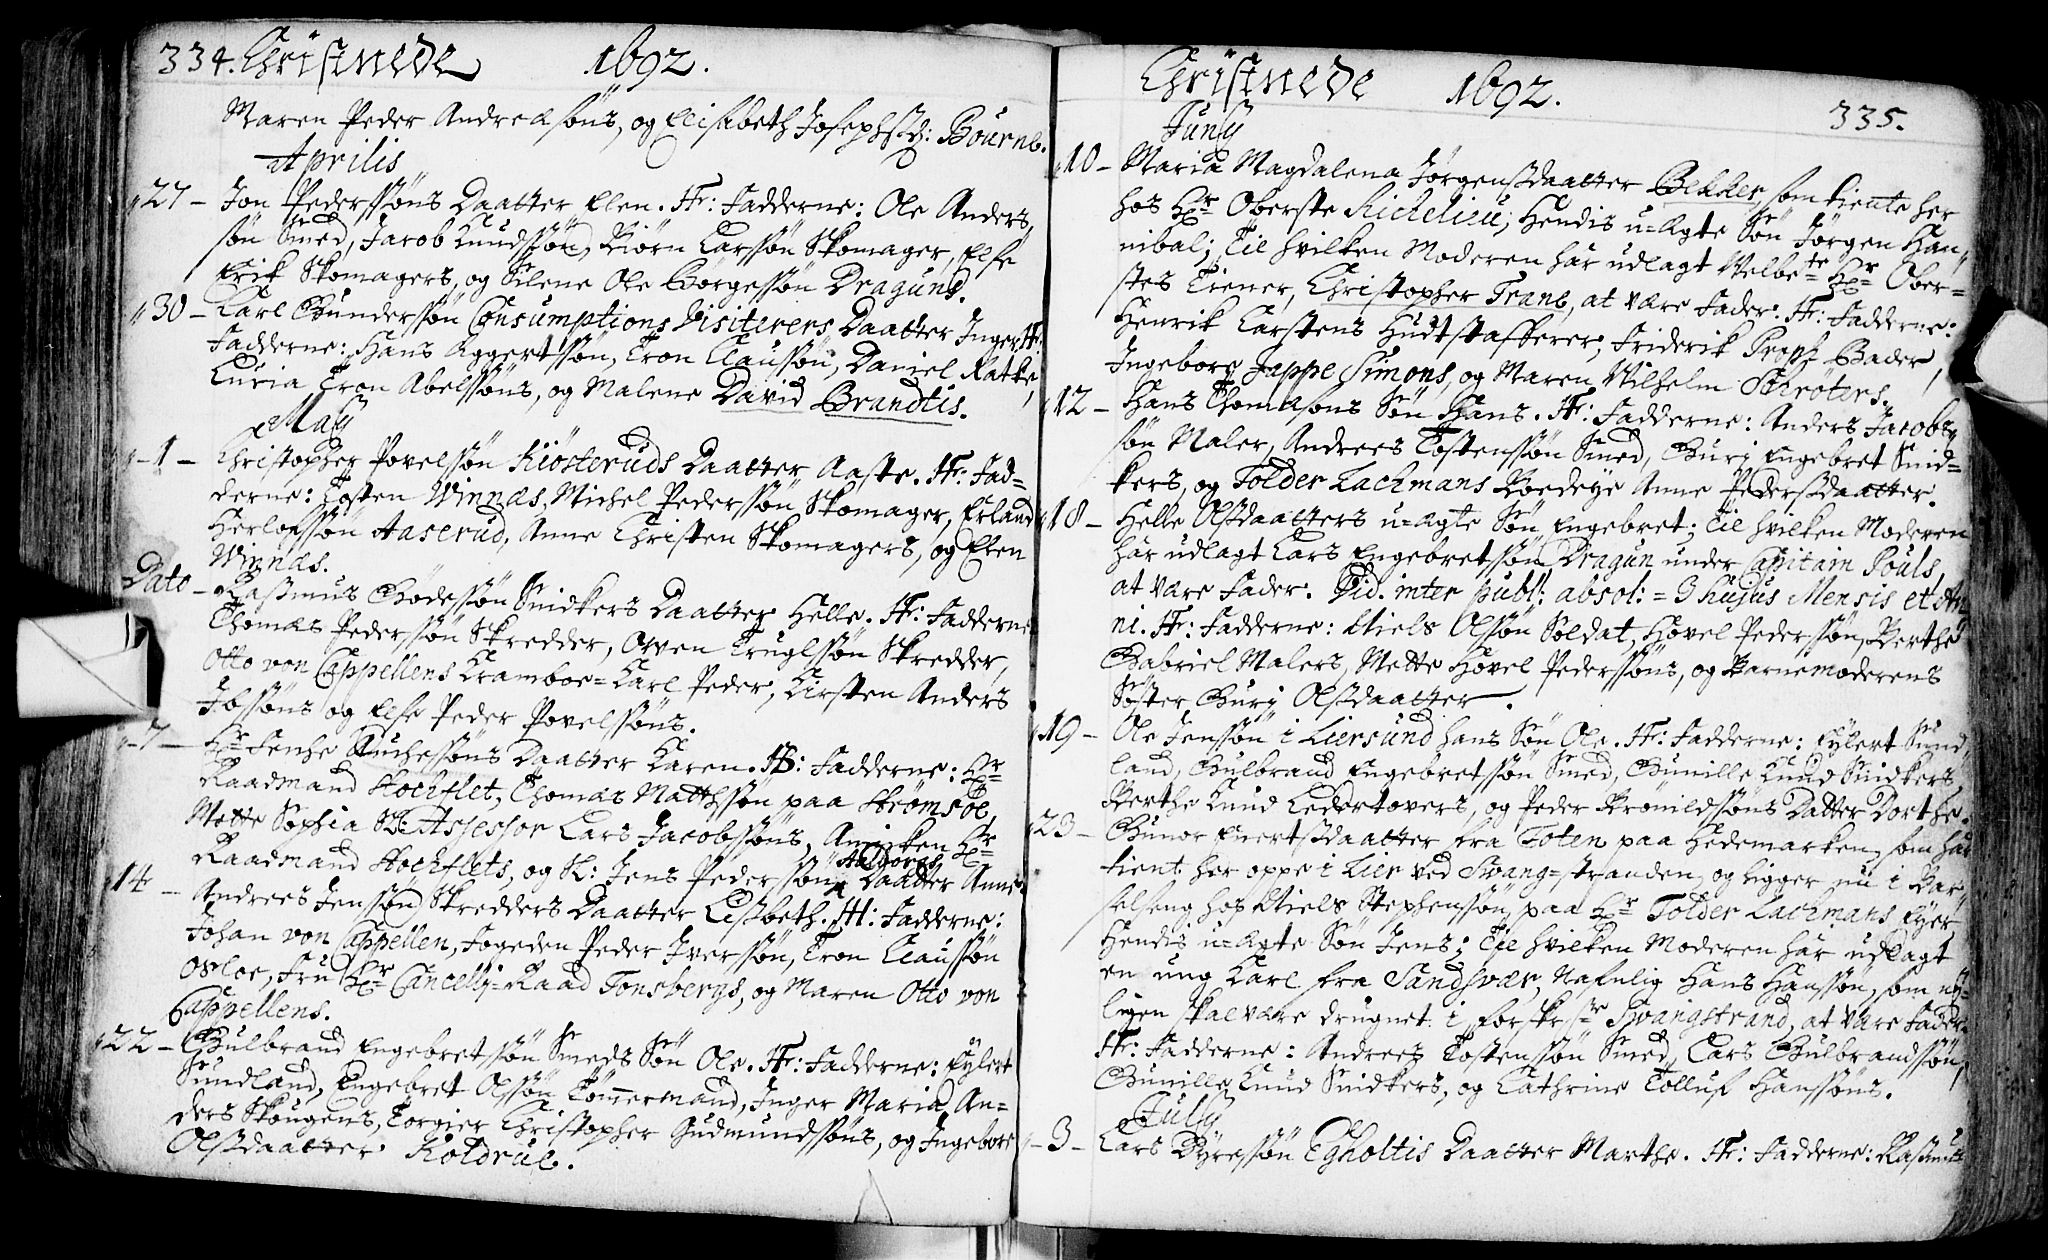 334. Christnede 1692.
Maren Peder Andreæsøns, og Elisabeth Josephsd: Bourne.
Aprilis
27 – Jon Pederssøns Daatter Elen. Fr: Fadderne: Ole Anders
søn Smed, Jacob Knudssøn, Biørn Larssøn Skomager, Else
Erik Skomagers, og Silene Ole Børgessøn Draguns.
30 – Carl Gunderssøn Consumptions Visiterers Daatter Inger. Fr:
Fadderne: Hans Aggertssøn, Tron Claussøn, Daniel Ratke,
Lucia Tron Abelssøns, og Malene David Brandtis.
May
1 – Christopher Povelssøn Kiøsteruds Daatter Aaste. Fr: Fad=
derne: Tosten Winnæs, Michel Pederssøn Skomager, Erland
Herlofssøn Aaserud, Anne Christen Skomagers, og Elen
Winnæs.
Dato – Rasmus Bødessøn Snidkers Daatter Helle. Fr: Fadderne
Thomas Pederssøn Skredder, Orven Truglssøn Skredder,
Otto von Cappellens Kramboe=Karl Peder, Kirsten Anders
Ibssøns og Else Peder Povelssøns.
7 – Hr Jenhe Duchessøns Daatter Karen. Fr: Fadderne: Hr
Raadmand Stochflet, Thomas Matthssøn paa Strømsøe,
Mette Sophia Sl: Assessor Lars Jacobssøns, Anniken Hr
Raadmand Stochflets, og Sl: Jens Pederssøn Aalborgs Daatter Anne
14 – Andrees Jenssøn Skredders Daatter Lisbeth. Fr: Fadderne:
Johan von Cappellen, Fogeden Peder Iverssøn, Tron Claussøn
Osloe, Fru Hr Cancelly=Raad Tonsbergs, og Maren Otto von
Cappellens.
22 – Gulbrand Engebretssøn Smeds Søn Ole. Fr: Fadderne: Eylert
Sundland, Engebret Olssøn Tømmermand, Inger Maria An=
ders Skougens, Torgier Christopher Gudmundssøns, og Ingebore
Olssdaatter Koldrue.
Christnede 1692. 335.
Juny
10 – Maria Magdalena Jørgenssdaatter Bekker, som tiente her
hos Hr Oberste Richelieu, Hendis u=ægte Søn Jørgen Han=
nibal; til hvilken Moderen har udlagt Velbe:te Hr Ober=
stes Tiener, Christopher Trane, at være Fader. Fr: Fadderne:
Henrik Carstens Hudtstafferer, Friderik Propst Bader,
Ingeborg Jappe Simons, og Maren Vilhelm Schrøters.
12 – Hans Thomæsons Søn Hans. Fr: Fadderne: Anders Jacobs=
søn Maler, Andrees Tostenssøn Smed, Guri Engebret Snid=
kers, og Tolder Lachmans Boedeye Anne Pederssdaatter.
18 – Helle Olssdaatters u=ægte Søn Engebret; til hvilken Moderen
har udlagt Lars Engebretssøn Dragun under Capitain Pouls
at være Fader. Vid. inter publ: absol: = 3 hujus Mensis et An=
ni. Fr: Fadderne: Niels Olssøn Soldat, Hovel Pederssøn, Berthe
Gabriel Malers, Mette Hovel Pederssøns, og Barnemoderens
Søster Gury Olssdaatter.
19 – Ole Jenssøn i Liersund hans Søn Ole. Fr: Fadderne: Eylert Sund
land, Gulbrand Engebretssøn Smed, Gunille Knud Snidkers
Berthe Knud Ledertovers, og Peder Brønildssøns Datter Dorthe.
23 – Gunor Evertssdaatter fra Toten paa Hedemarken, som har
tient her oppe i Lier ved Svang=stranden, og ligger nu i Bar=
selseng hos Niels Stephenssøn, paa Hr Tolder Lachmans Eyer,
Hendis u=ægte Søn Jens; til hvilken Moderen har udlagt
en ung Karl fra Sandsvær, Nafnlig Hans Hanssøn, som ny=
ligen skal være drugnet i forskr:ne Svangstrand, at være Fader.
Fr: Fadderne: Andrees Tostenssøn Smed, Lars Gulbrandssøn,
Gunille Knud Snidkers, og Cathrine Tolluf Hanssøns.
July
3 – Lars Dyressøn Egholtis Daatter Marthe. Fr: Fadderne: Rasmus